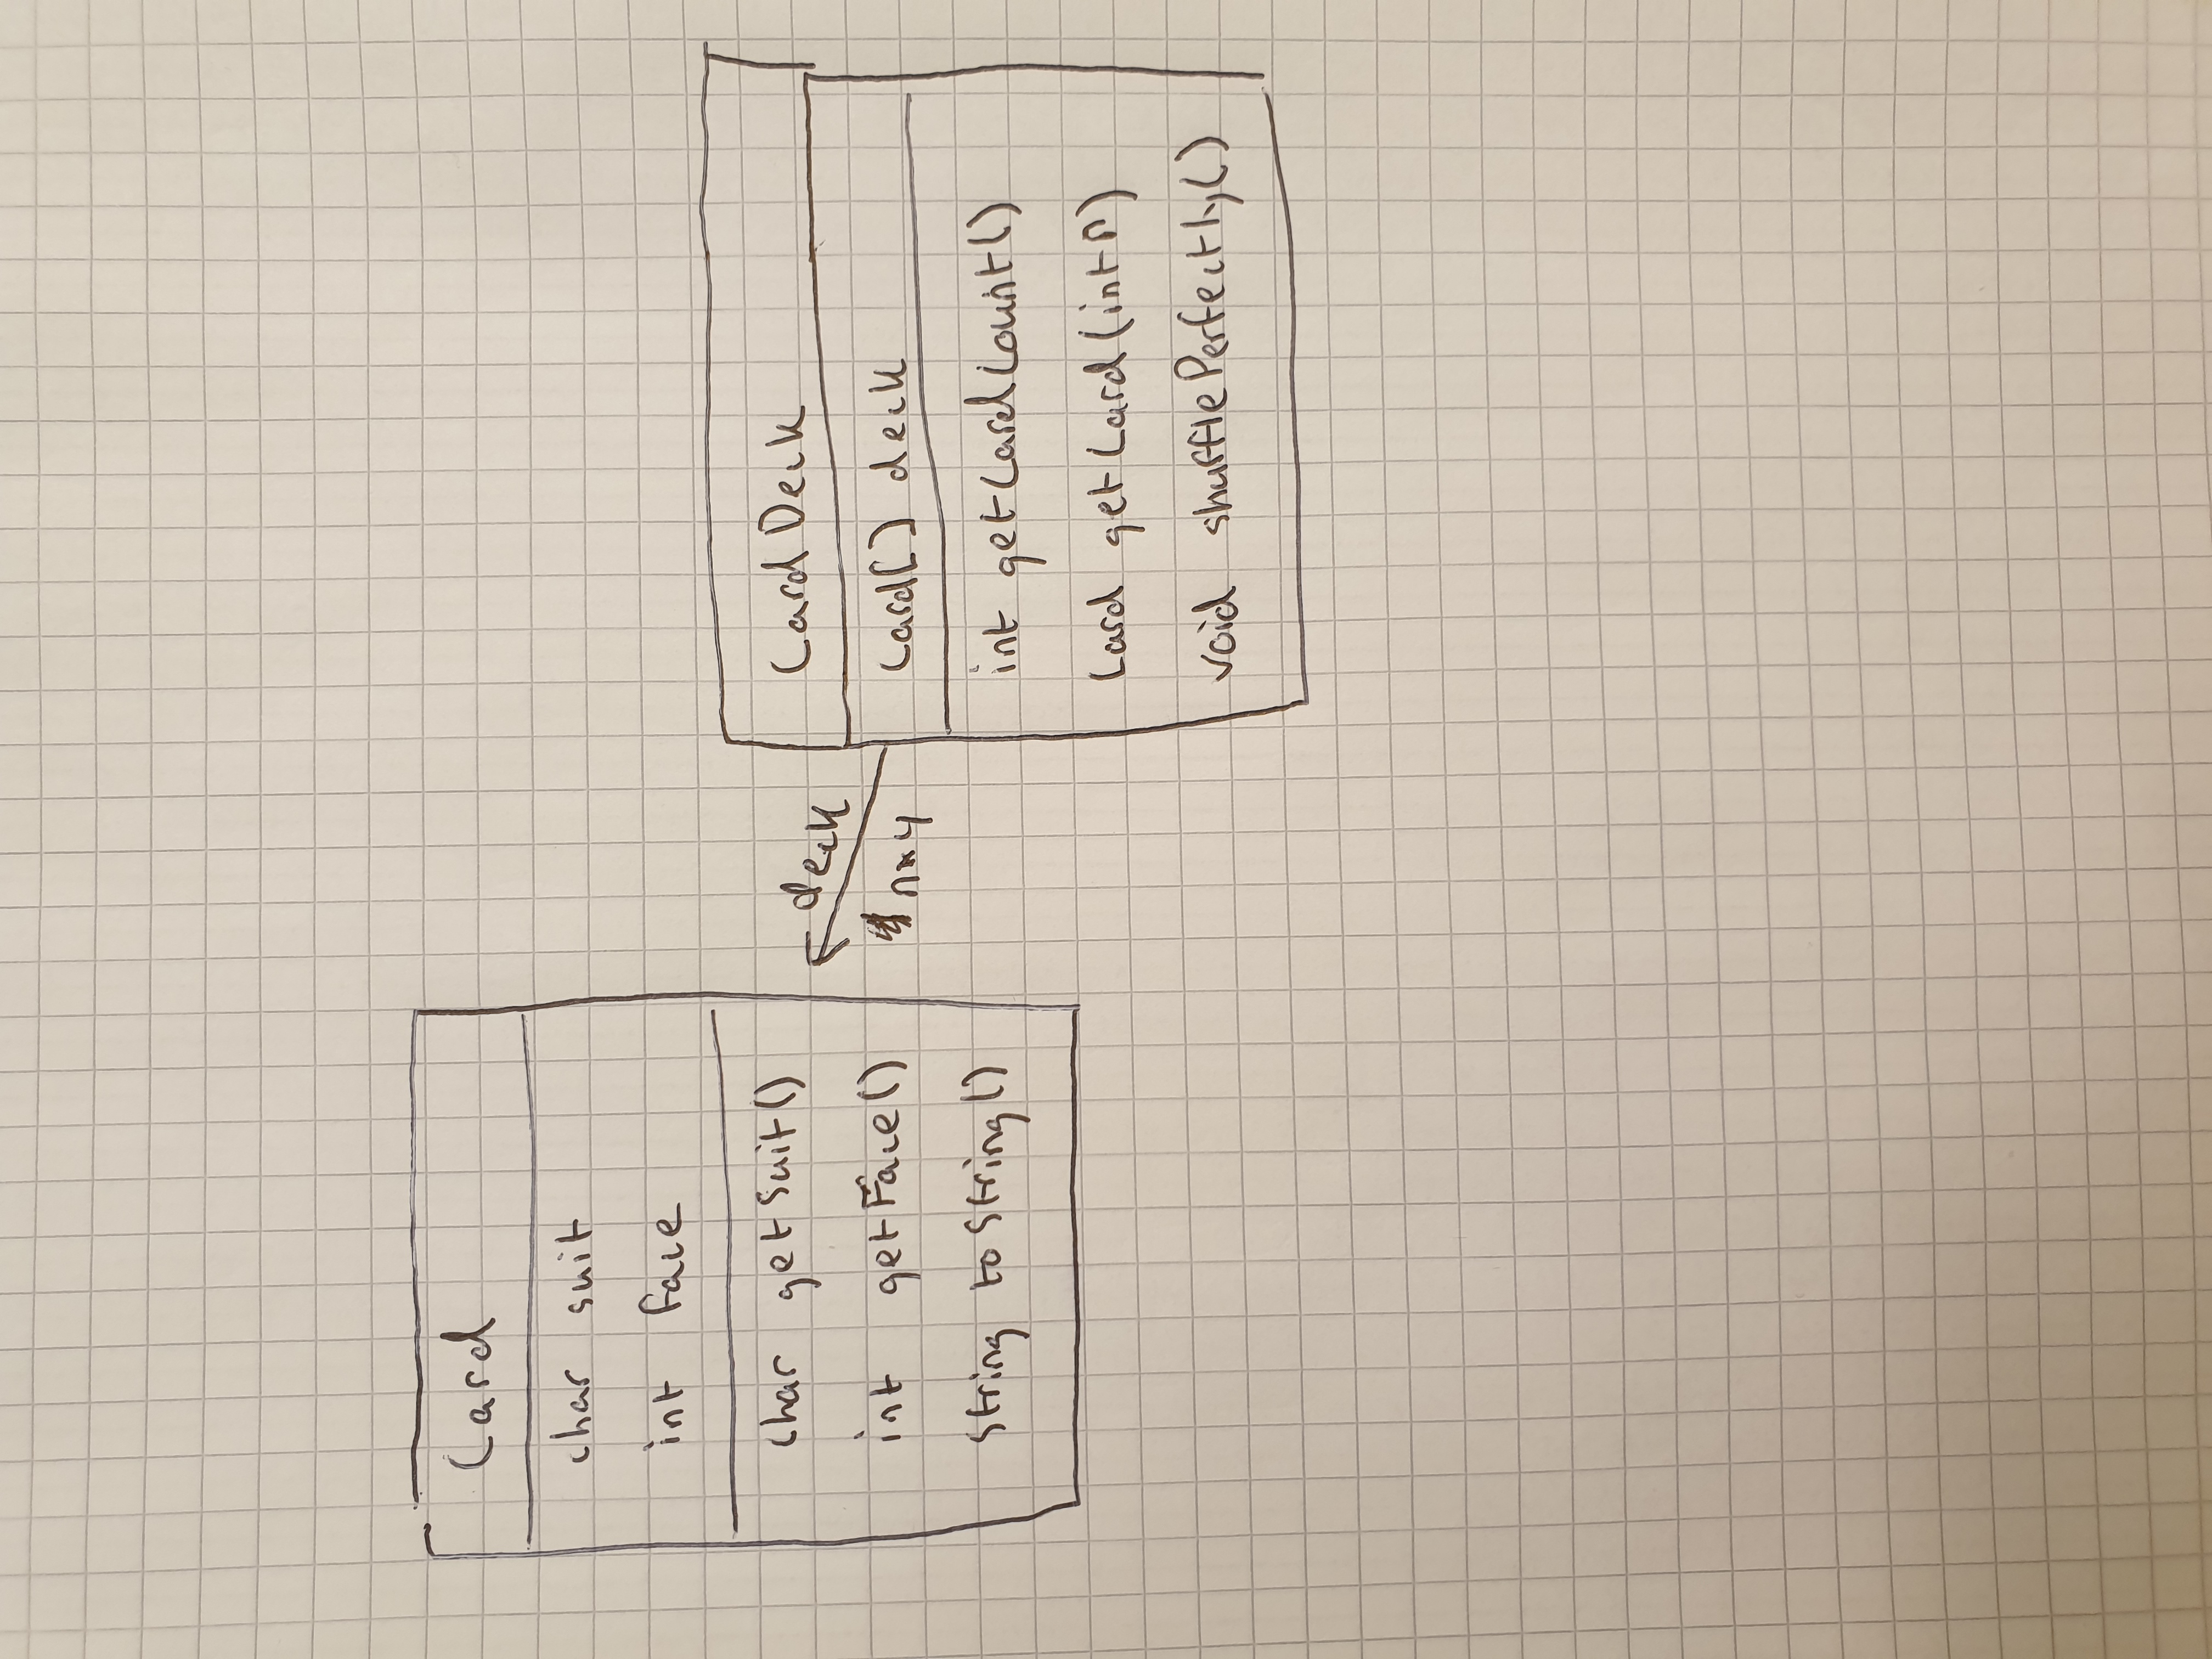 Card
char suit
int face
char getSuit()
int getFace()
String toString()
deck
n*4
CardDeck
Card[] deck
int getCardCount()
Card getCard(int n)
void shufflePerfectly()